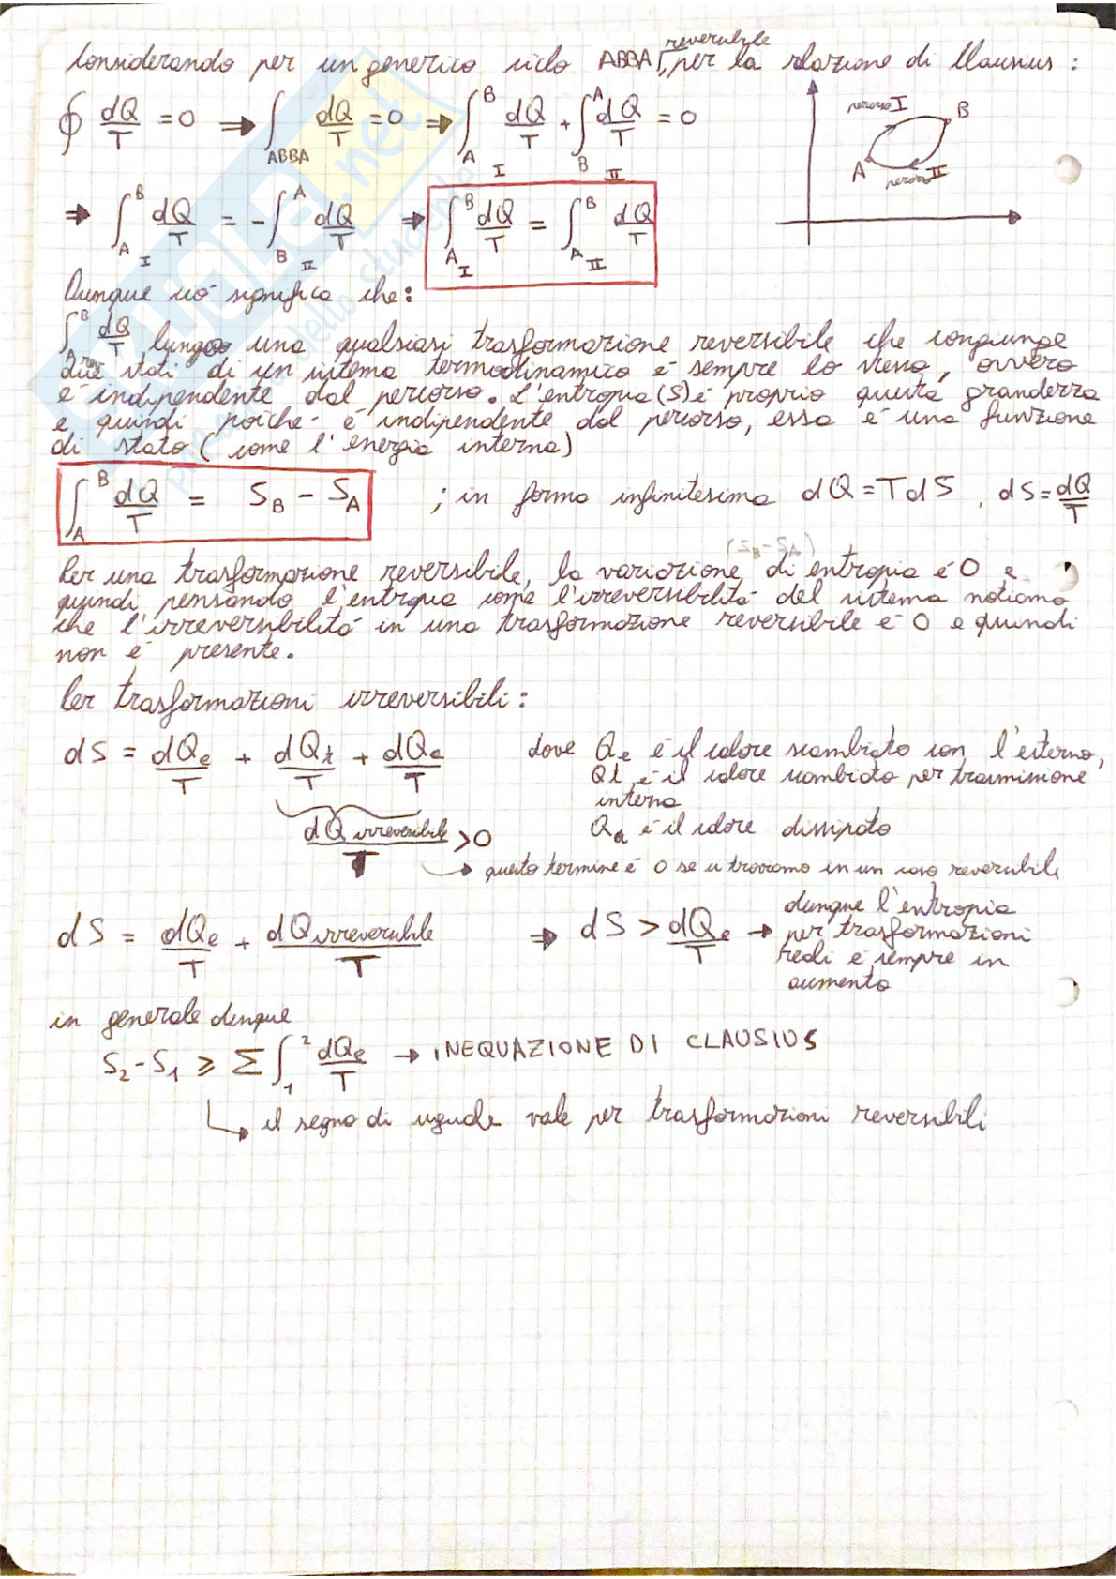 Considerando per un generico ciclo ABBA reversibile, per la relazione di Clausius:
∮ dQ/T = 0 ⇒ ∫_ABBA dQ/T = 0 ⇒ ∫_A^B I dQ/T + ∫_B^A II dQ/T = 0
percorso I
B
A
percorso II
⇒ ∫_A^B I dQ/T = - ∫_B^A II dQ/T ⇒ ∫_A^B I dQ/T = ∫_A^B II dQ/T
Dunque ciò significa che:
∫_A rev^B dQ/T lungo una qualsiasi trasformazione reversibile che congiunge
due stati di un sistema termodinamico è sempre lo stesso, ovvero
è indipendente dal percorso. L'entropia (S) è proprio questa grandezza
e quindi poiché è indipendente dal percorso, essa è una funzione
di stato (come l'energia interna)
∫_A^B dQ/T = S_B - S_A ; in forma infinitesima dQ = TdS , dS = dQ/T
(S_B - S_A)
Per una trasformazione reversibile, la variazione di entropia è 0 e
quindi pensando l'entropia come l'irreversibilità del sistema notiamo
che l'irreversibilità in una trasformazione reversibile è 0 e quindi
non è presente.
Per trasformazioni irreversibili:
dS = dQe/T + dQt/T + dQa/T dove Qe è il calore scambiato con l'esterno,
Qt è il calore scambiato per trasmissione
interna
dQ irreversibile/T > 0 Qa è il calore dissipato
→ questo termine è 0 se ci troviamo in un caso reversibile
dS = dQe/T + dQ irreversibile/T ⇒ dS > dQe/T → dunque l'entropia
per trasformazioni
reali è sempre in
aumento
in generale dunque
S2 - S1 ≥ Σ ∫_1^2 dQe/T → INEQUAZIONE DI CLAUSIUS
↳ il segno di uguale vale per trasformazioni reversibili